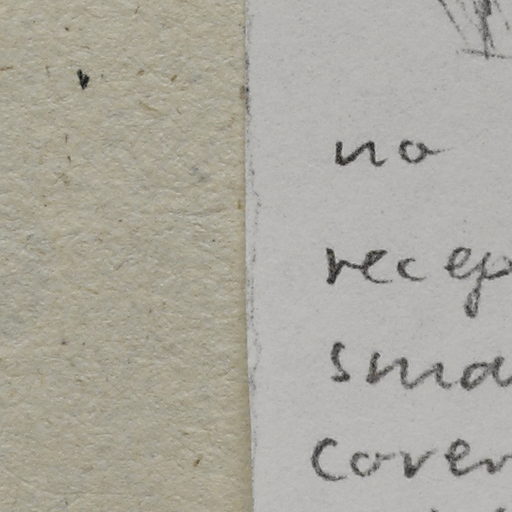 no
recep
sma
cover